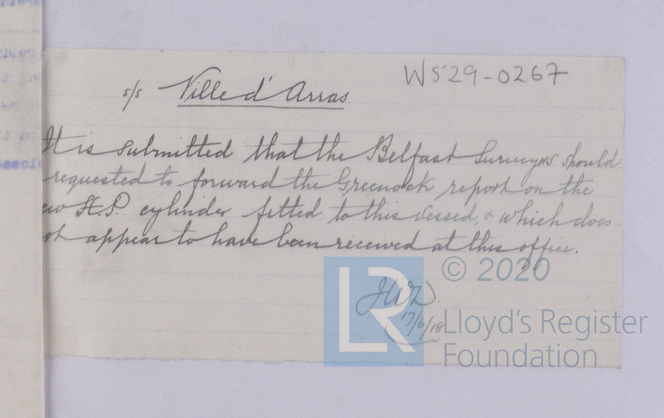 W529-0267
s/s Ville d' Arras.
It is submitted that the Belfast Surveyors should
requested to forward the Greenock report on the
H.P. cylinder fitted to this vessel, & which does
appear to have been received at this office.
JWD
17/6/18
LR
© 2020
Lloyd's Register
Foundation